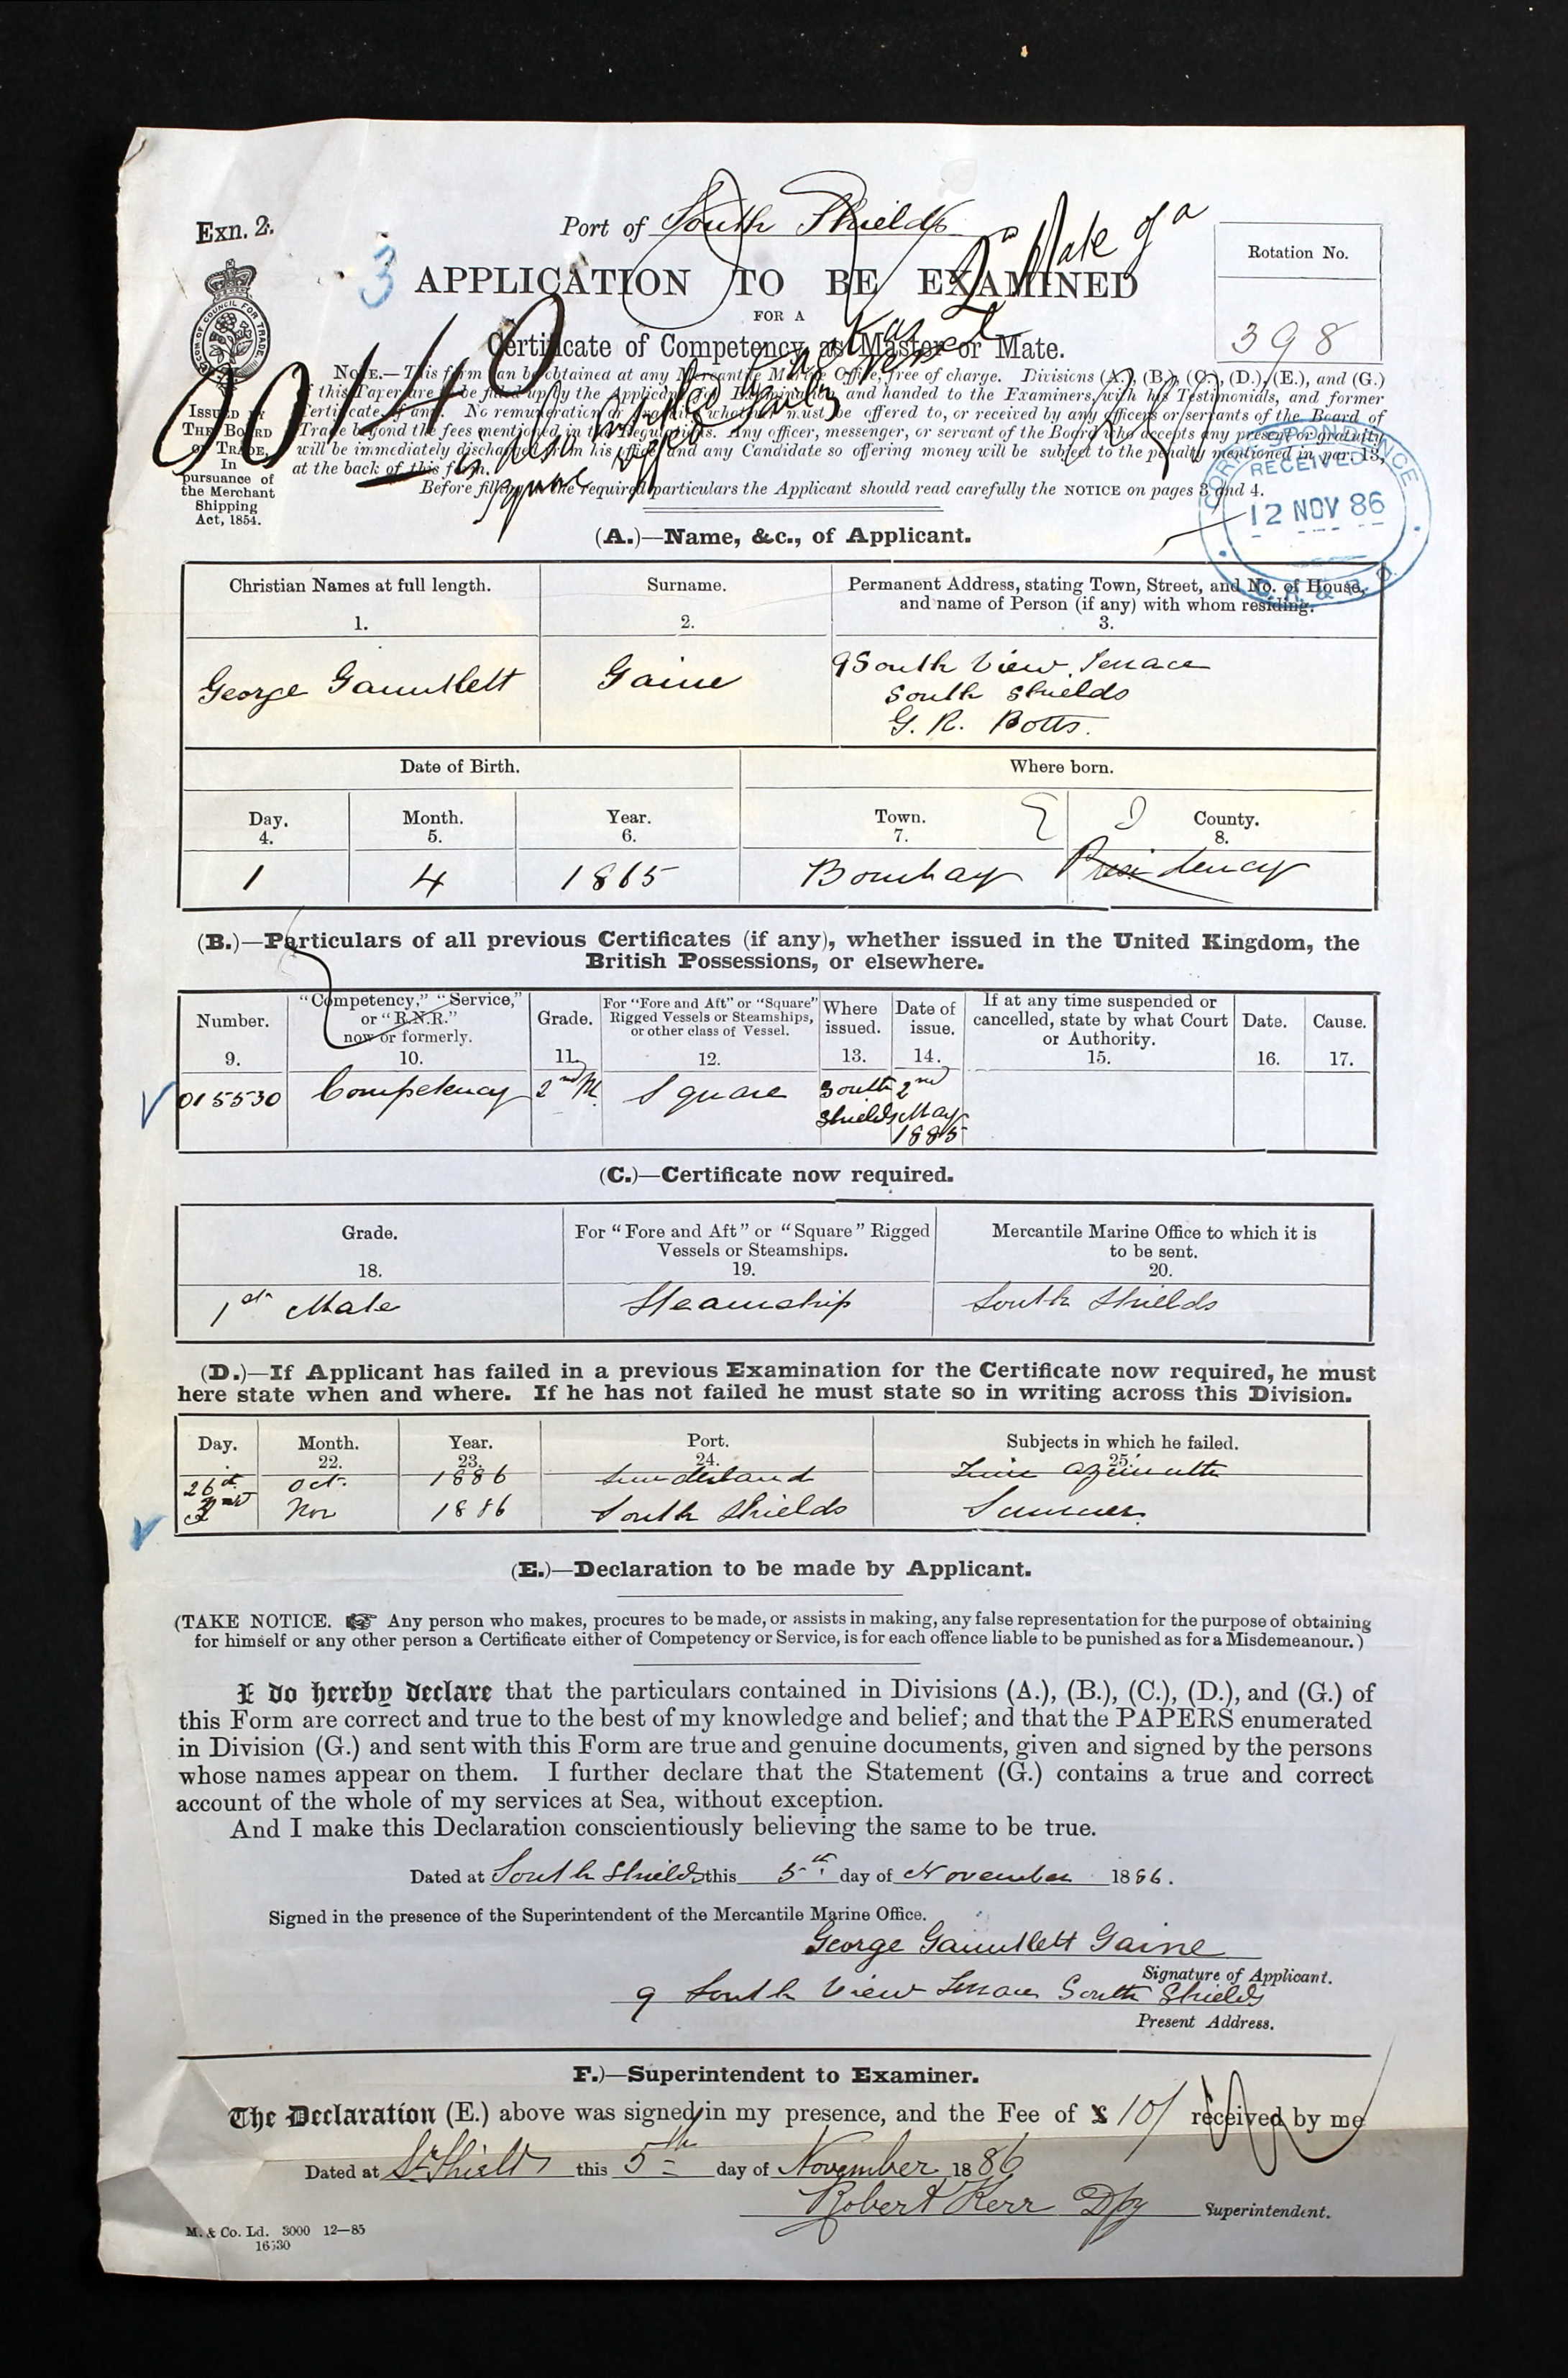 Exn. 2.
Port of South Shields
3
APPLICATION TO BE EXAMINED
FOR A
Certificate of Competency as Master or Mate.
Mate of a
Rotation No.
398
ISSUED BY
THE BOARD
OF TRADE,
In
pursuance of
the Merchant
Shipping
Act, 1854.
NOTE.—This form can be obtained at any Mercantile Marine Office, free of charge. Divisions (A.), (B.), (C.), (D.), (E.), and (G.)
of this Paper are to be filled up by the Applicant for Examination and handed to the Examiners, with his Testimonials, and former
Certificate, if any. No remuneration or gratuity whatever must be offered to, or received by any officers or servants of the Board of
Trade beyond the fees mentioned in the Regulations. Any officer, messenger, or servant of the Board who accepts any present or gratuity
will be immediately discharged from his office, and any Candidate so offering money will be subject to the penalty mentioned in par. 13,
at the back of this form.
Before filling up the required particulars the Applicant should read carefully the NOTICE on pages 3 and 4.
RECEIVED
12 NOV 86
(A.)—Name, &c., of Applicant.
Christian Names at full length.
1.
Surname.
2.
Permanent Address, stating Town, Street, and No. of House,
and name of Person (if any) with whom residing.
3.
George Gauntlett
Gaine
9 South View Terrace
South Shields
G. R. Botts.
Date of Birth.
Where born.
Day.
4.
Month.
5.
Year.
6.
Town.
7.
County.
8.
1
4
1865
Bombay
Presidency
(B.)—Particulars of all previous Certificates (if any), whether issued in the United Kingdom, the
British Possessions, or elsewhere.
Number.
9.
"Competency," "Service,"
or "R.N.R."
now or formerly.
10.
Grade.
11.
For "Fore and Aft" or "Square"
Rigged Vessels or Steamships,
or other class of Vessel.
12.
Where
issued.
13.
Date of
issue.
14.
If at any time suspended or
cancelled, state by what Court
or Authority.
15.
Date.
16.
Cause.
17.
015530
Competency
2nd M.
Square
South
Shields
2nd
May
1885
(C.)—Certificate now required.
Grade.
18.
For "Fore and Aft" or "Square" Rigged
Vessels or Steamships.
19.
Mercantile Marine Office to which it is
to be sent.
20.
1st Mate
Steamship
South Shields
(D.)—If Applicant has failed in a previous Examination for the Certificate now required, he must
here state when and where. If he has not failed he must state so in writing across this Division.
Day.
Month.
22.
Year.
23.
Port.
24.
Subjects in which he failed.
25.
26th Oct. 1886 Sunderland Time azimuth
2nd Nov 1886 South Shields Sumner.
(E.)—Declaration to be made by Applicant.
(TAKE NOTICE. ☞ Any person who makes, procures to be made, or assists in making, any false representation for the purpose of obtaining
for himself or any other person a Certificate either of Competency or Service, is for each offence liable to be punished as for a Misdemeanour.)
I do hereby declare that the particulars contained in Divisions (A.), (B.), (C.), (D.), and (G.) of
this Form are correct and true to the best of my knowledge and belief; and that the PAPERS enumerated
in Division (G.) and sent with this Form are true and genuine documents, given and signed by the persons
whose names appear on them. I further declare that the Statement (G.) contains a true and correct
account of the whole of my services at Sea, without exception.
And I make this Declaration conscientiously believing the same to be true.
Dated at South Shields this 5th day of November 1886.
Signed in the presence of the Superintendent of the Mercantile Marine Office.
George Gauntlett Gaine
Signature of Applicant.
9 South View Terrace South Shields
Present Address.
F.)—Superintendent to Examiner.
The Declaration (E.) above was signed in my presence, and the Fee of £ 10/ received by me
Dated at So Shields this 5th day of November 1886
Robert Kerr Dpy Superintendent.
M. & Co. Ld. 3000 12—85
16530